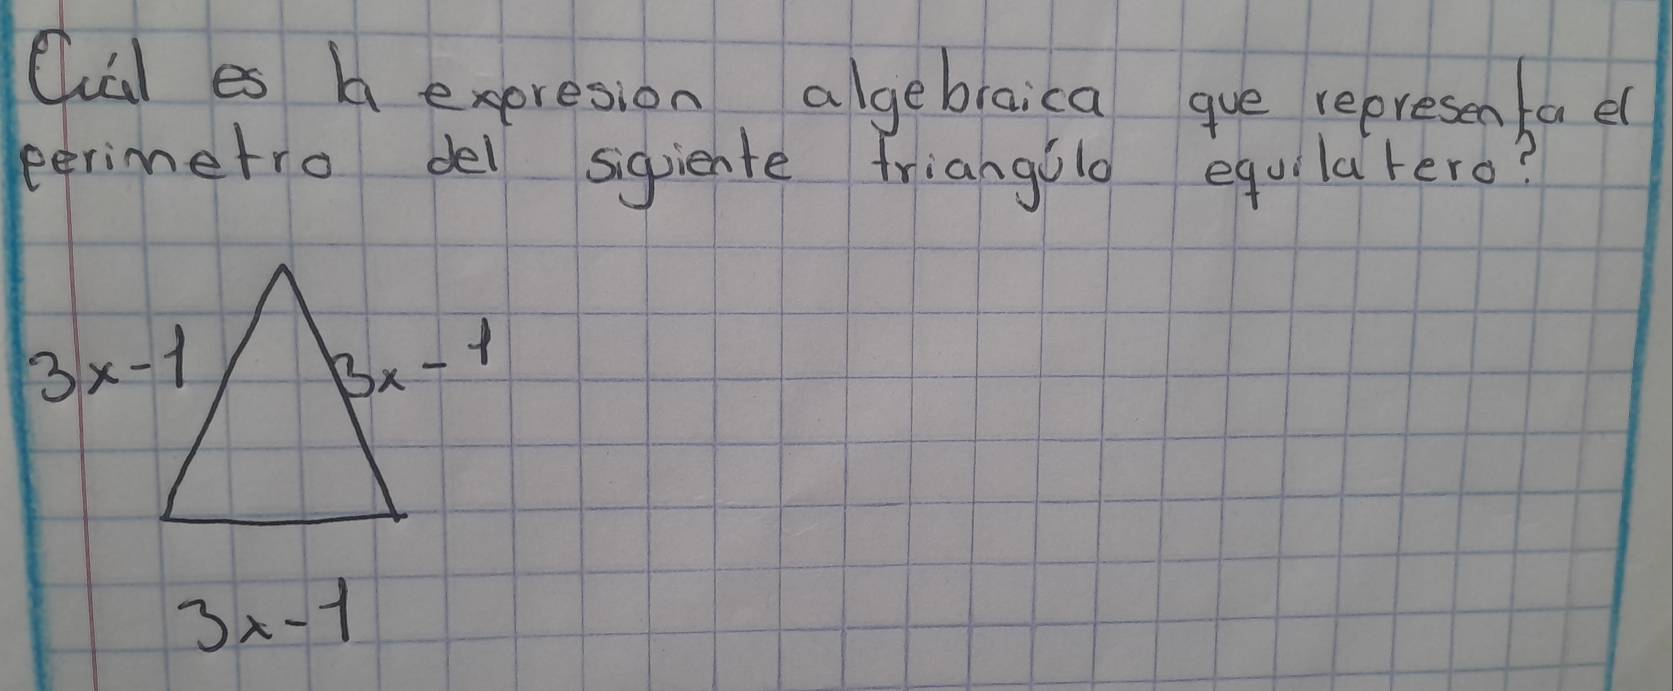 Cuál es la expresion algebraica que representa el
perimetro del siguiente triangúlo equilatero?
3x-1
3x-1
3x-1